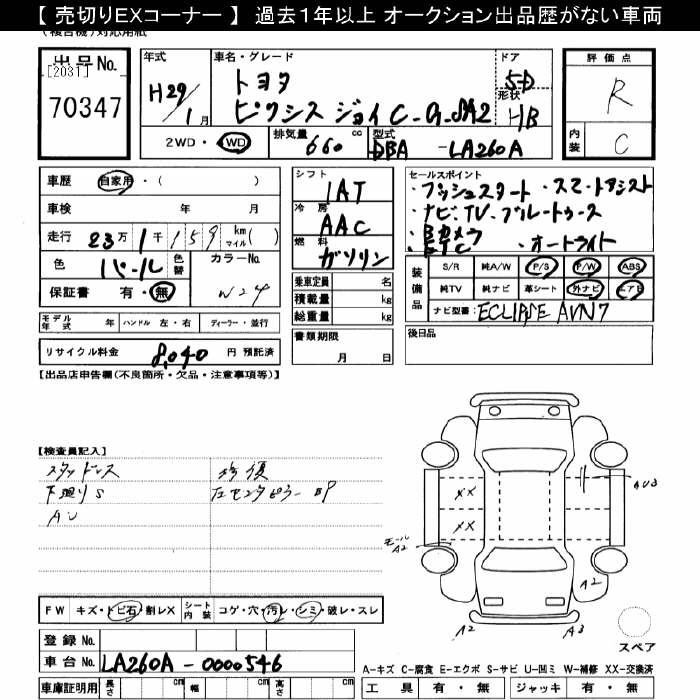 【 売切りEXコーナー 】 過去１年以上 オークション出品歴がない車両
(複合機)対応用紙
出品No.
[2031]
70347
年式
H29/1月
車名・グレード
トヨタ
ピクシス ジョイ C-G-SA2
ドア
5D
形状
HB
評価点
R
内装
C
2WD・4WD
排気量
660 cc
型式
DBA -LA260A
車歴 自家用・( )
車検 年 月
走行 23万1千159 km マイル( )
色 パール 色替
カラーNo.
W24
保証書 有・無
シフト
IAT
冷房
AAC
燃料
ガソリン
セールスポイント
・プッシュスタート ・スマートアシスト
・ナビ、TV、ブルートゥース
・Bカメラ
・ETC ・オートライト
乗車定員 名
積載量 kg
総重量 kg
装備品
S/R 純A/W P/S P/W ABS
純TV 純ナビ 革シート 外ナビ エアB
ナビ型番: ECLIPSE AVN7
モデル年式 年 ハンドル 左・右 ディーラー・並行
書類期限
月 日
後日品
リサイクル料金 8,040 円 預託済
【出品店申告欄(不良箇所・欠品・注意事項等)】
【検査員記入】
スタッドレス 修復
下廻りS 左センタピラー BP
AU
XX
XX
AU3
モール
A2
A2
A2
A3
スペア
FW キズ・トビ石・割レX シート内装 コゲ・穴・汚レ・シミ・破レ・スレ
登録No.
車台No. LA260A-0000546
車庫証明用 長さ cm 幅 cm 高さ cm
A-キズ C-腐食 E-エクボ S-サビ U-凹ミ W-補修 XX-交換済
工具 有・無 ジャッキ 有・無